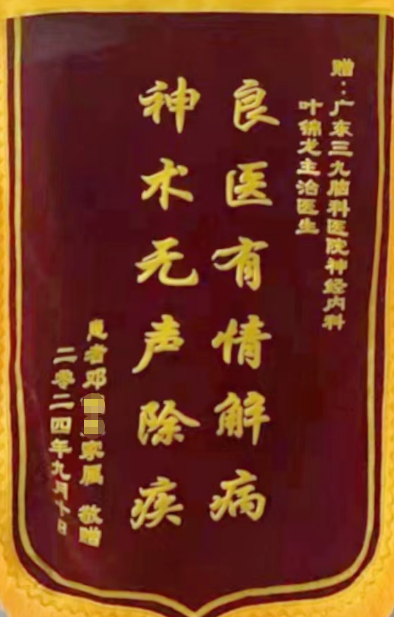 赠：广东三九脑科医院神经内科
叶锦龙主治医生
良医有情解病
神术无声除疾
患者邓家属 敬赠
二零二四年九月十日